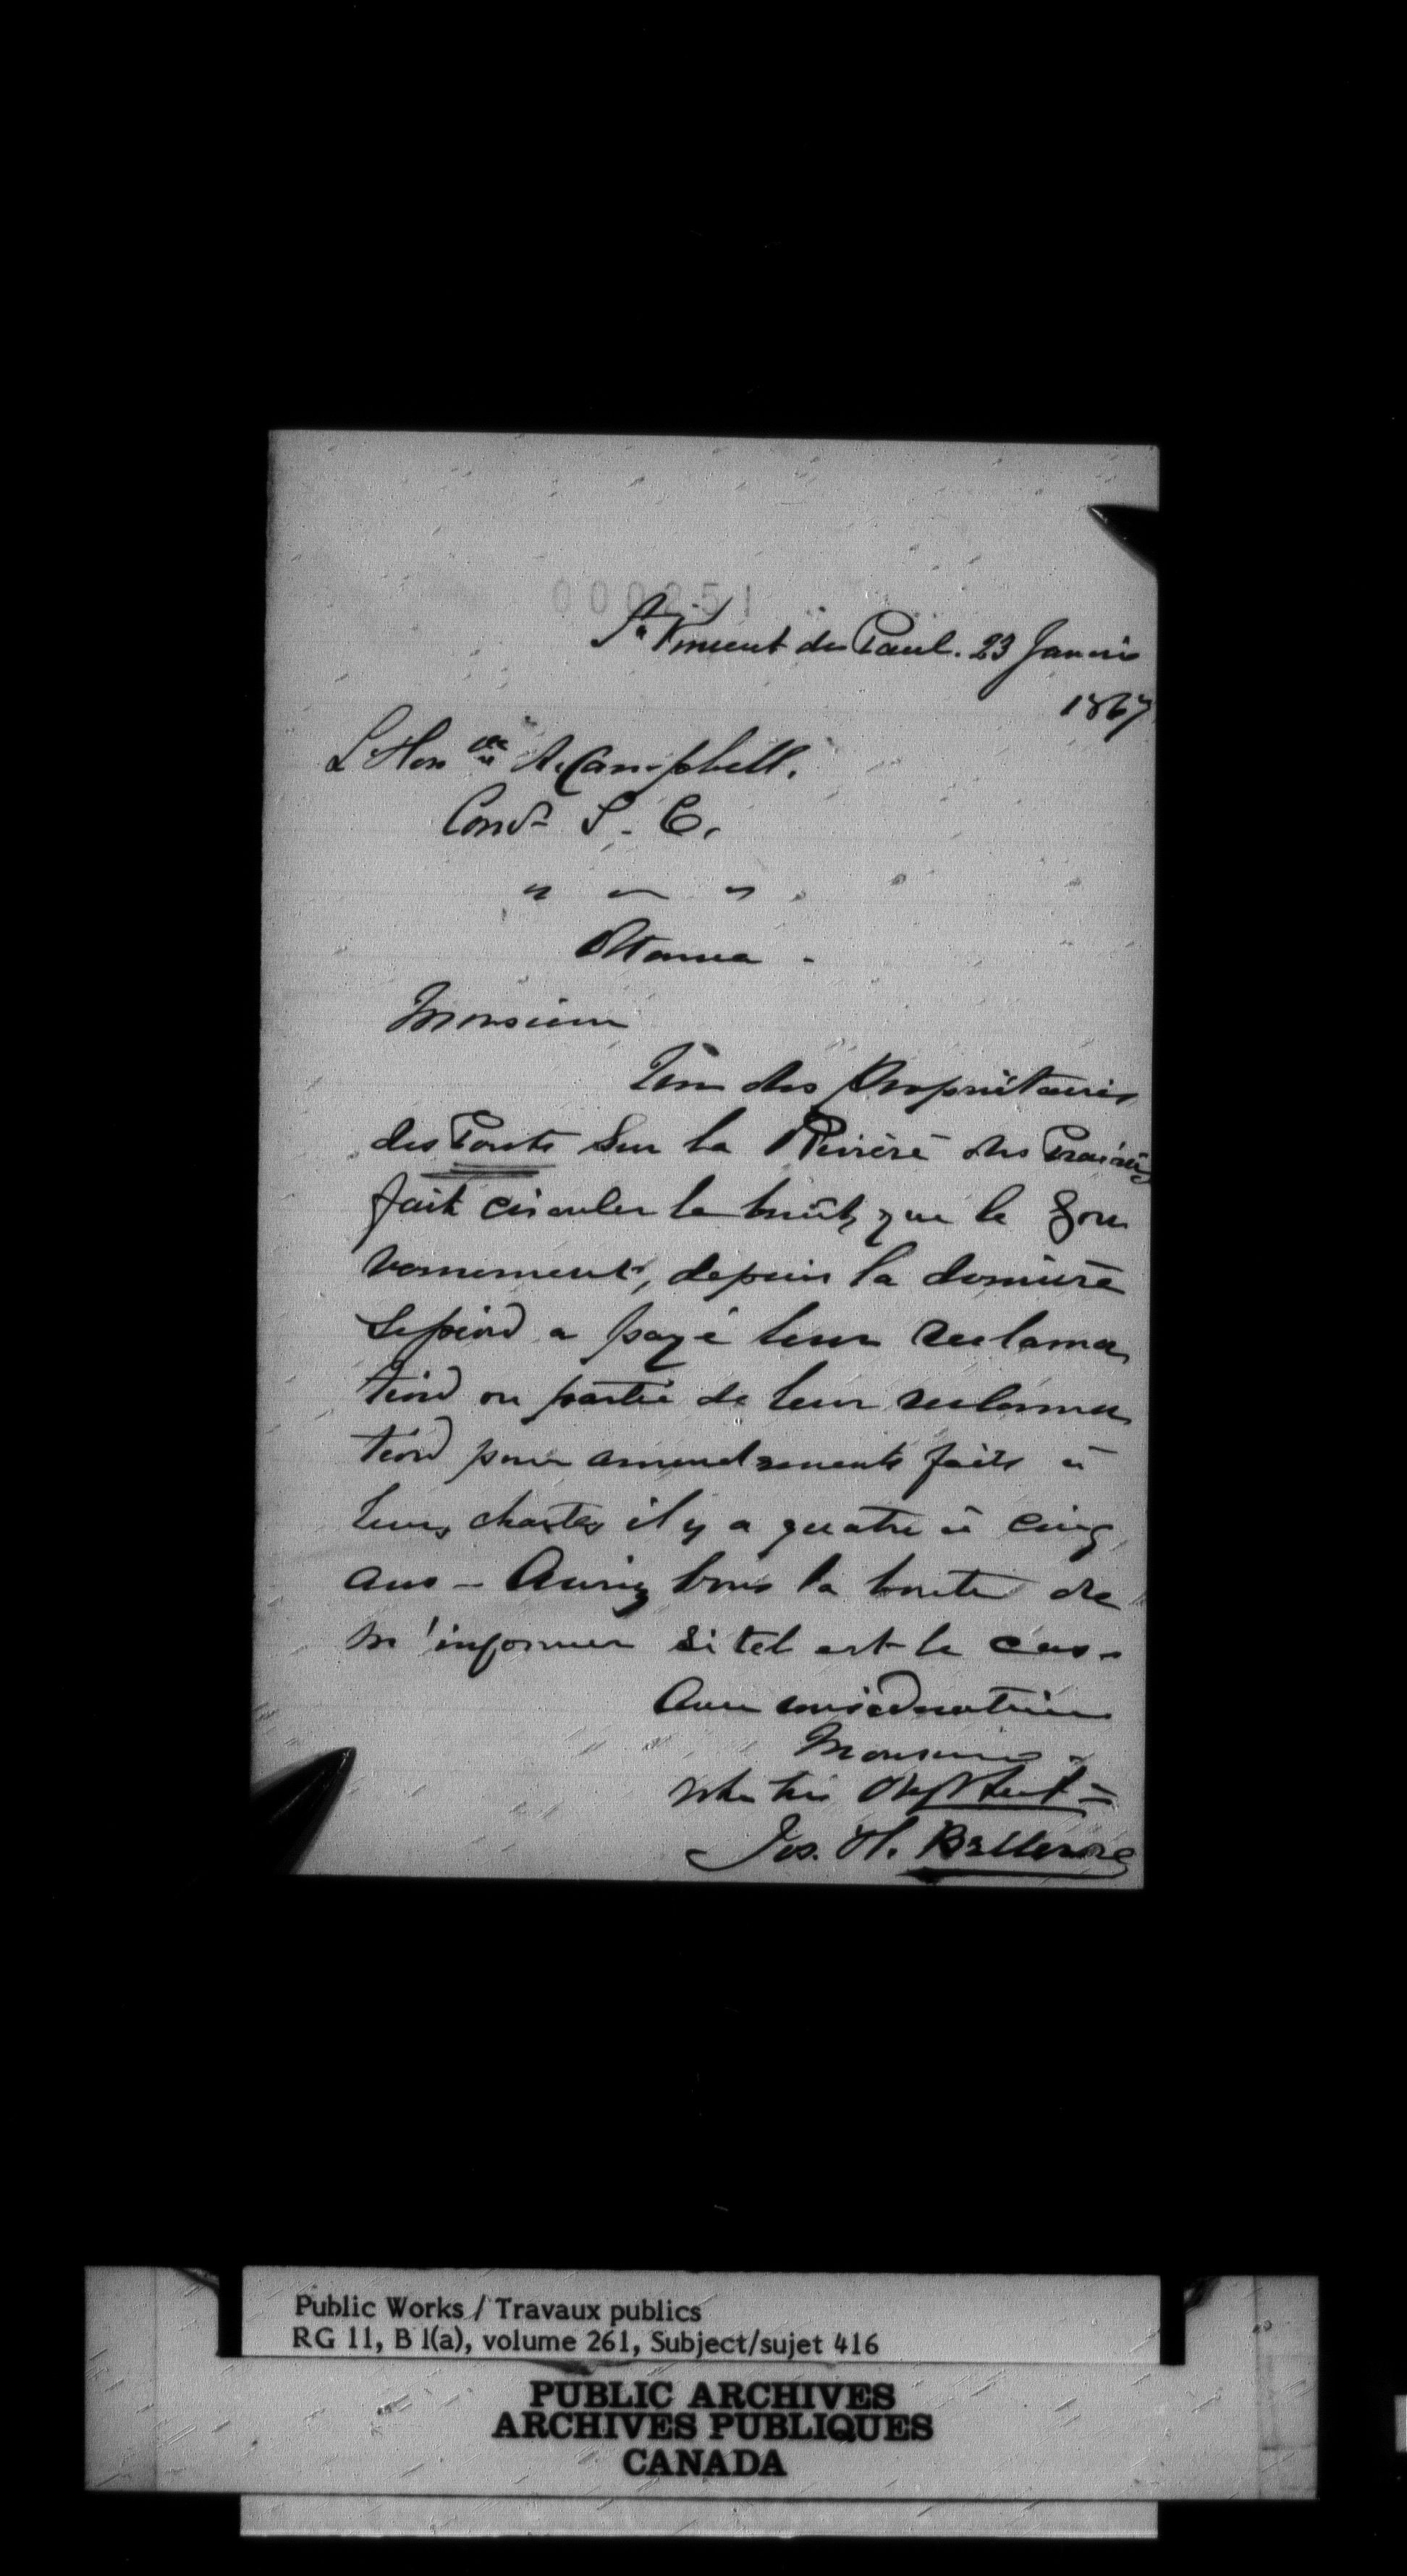 000251
St Vincent de Paul. 23 Janvier
1867
L'Honble A. Campbell.
Com S. C.
" " "
Ottawa -
Monsieur
Un des Propriétaires
des Ponts sur la Rivière des Prairies
fait circuler le bruit, que le Gou
vernement, depuis la dernière
Session a payé leur reclama
tion ou partie de leur reclama
tion pour amendements faits à
leurs chartes il y a quatre à cinq
ans - Auriez vous la bonté de
m'informer si tel est le cas.
Avec considération
Monsieur
votre très obést Sert
Jos. H. Bellerose
Public Works / Travaux publics
RG 11, B 1(a), volume 261, Subject/sujet 416
PUBLIC ARCHIVES
ARCHIVES PUBLIQUES
CANADA